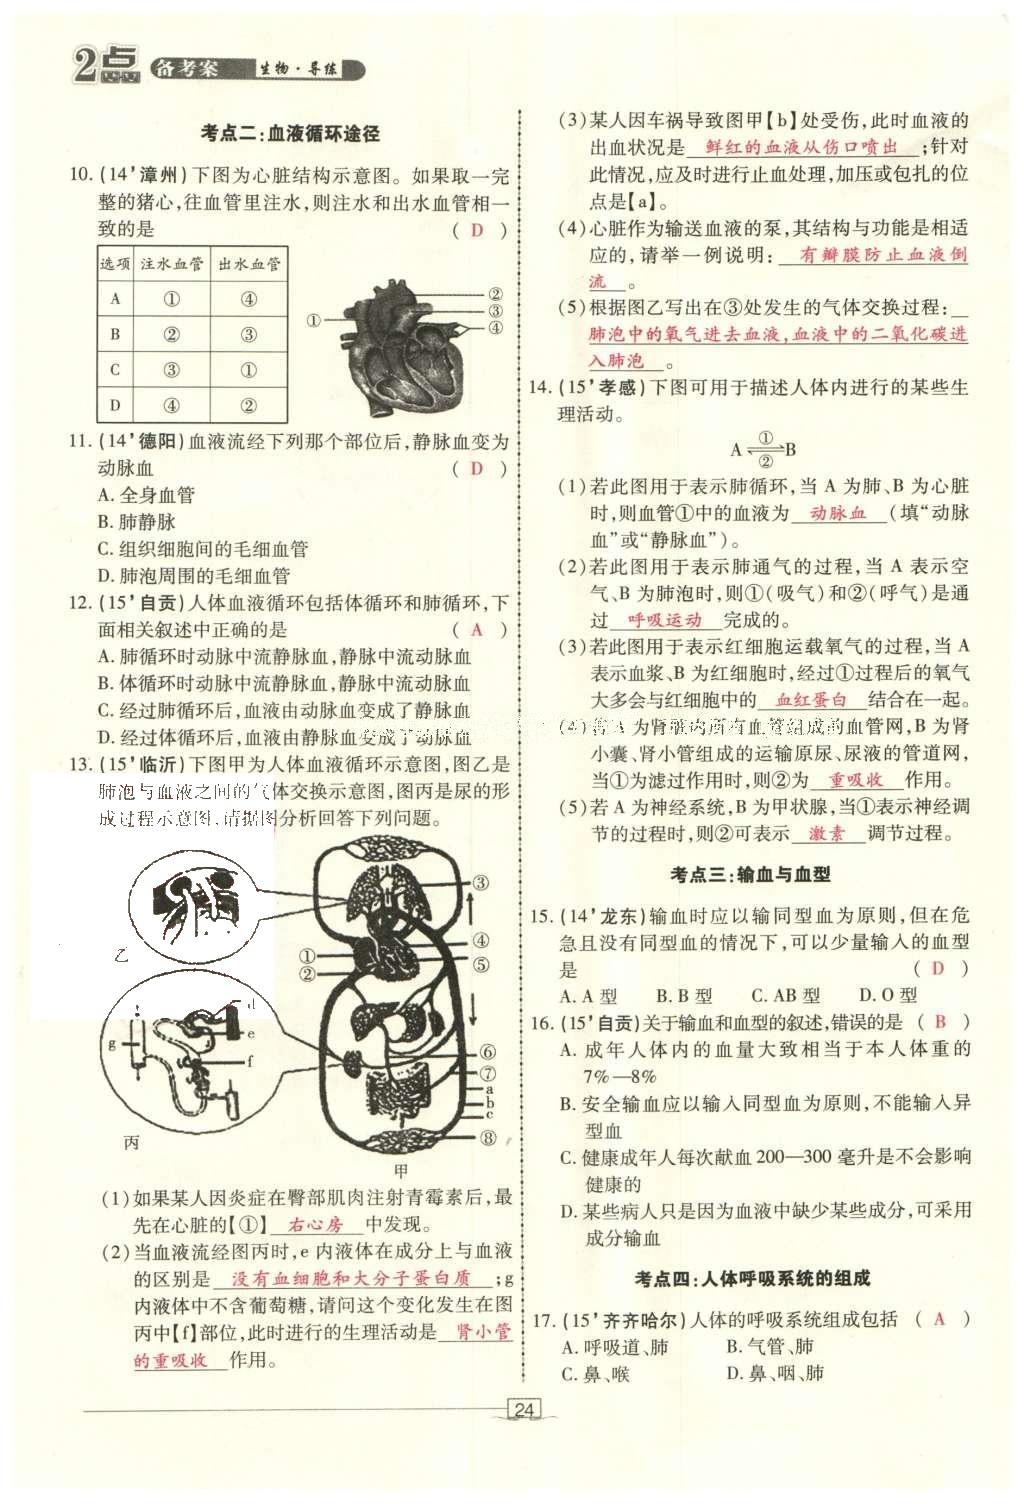 2点 备考案 生物·导练
考点二:血液循环途径
10.(14’漳州)下图为心脏结构示意图。如果取一完
整的猪心,往血管里注水,则注水和出水血管相一
致的是 ( D )
选项 注水血管 出水血管
A ① ④
B ② ③
C ③ ①
D ④ ②
①
②
③
④
11.(14’德阳)血液流经下列那个部位后,静脉血变为
动脉血 ( D )
A. 全身血管
B. 肺静脉
C. 组织细胞间的毛细血管
D. 肺泡周围的毛细血管
12.(15’自贡)人体血液循环包括体循环和肺循环,下
面相关叙述中正确的是 ( A )
A. 肺循环时动脉中流静脉血,静脉中流动脉血
B. 体循环时动脉中流静脉血,静脉中流动脉血
C. 经过肺循环后,血液由动脉血变成了静脉血
D. 经过体循环后,血液由静脉血变成了动脉血
13.(15’临沂)下图甲为人体血液循环示意图,图乙是
肺泡与血液之间的气体交换示意图,图丙是尿的形
成过程示意图,请据图分析回答下列问题。
乙
丙
甲
d
e
f
g
①
②
③
④
⑤
⑥
⑦
a
b
c
⑧
(1)如果某人因炎症在臀部肌肉注射青霉素后,最
先在心脏的【①】 右心房 中发现。
(2)当血液流经图丙时,e内液体在成分上与血液
的区别是 没有血细胞和大分子蛋白质 ;g
内液体中不含葡萄糖,请问这个变化发生在图
丙中【f】部位,此时进行的生理活动是 肾小管
的重吸收 作用。
(3)某人因车祸导致图甲【b】处受伤,此时血液的
出血状况是 鲜红的血液从伤口喷出 ;针对
此情况,应及时进行止血处理,加压或包扎的位
点是【a】。
(4)心脏作为输送血液的泵,其结构与功能是相适
应的,请举一例说明: 有瓣膜防止血液倒
流 。
(5)根据图乙写出在③处发生的气体交换过程:
肺泡中的氧气进去血液,血液中的二氧化碳进
入肺泡 。
14.(15’孝感)下图可用于描述人体内进行的某些生
理活动。
A ① ② B
(1)若此图用于表示肺循环,当 A 为肺、B 为心脏
时,则血管①中的血液为 动脉血 (填“动脉
血”或“静脉血”)。
(2)若此图用于表示肺通气的过程,当 A 表示空
气、B 为肺泡时,则①(吸气)和②(呼气)是通
过 呼吸运动 完成的。
(3)若此图用于表示红细胞运载氧气的过程,当 A
表示血浆、B 为红细胞时,经过①过程后的氧气
大多会与红细胞中的 血红蛋白 结合在一起。
(4)若 A 为肾脏内所有血管组成的血管网,B 为肾
小囊、肾小管组成的运输原尿、尿液的管道网,
当①为滤过作用时,则②为 重吸收 作用。
(5)若 A 为神经系统,B 为甲状腺,当①表示神经调
节的过程时,则②可表示 激素 调节过程。
考点三:输血与血型
15.(14’龙东)输血时应以输同型血为原则,但在危
急且没有同型血的情况下,可以少量输入的血型
是 ( D )
A. A 型 B. B 型 C. AB 型 D. O 型
16.(15’自贡)关于输血和血型的叙述,错误的是 ( B )
A. 成年人体内的血量大致相当于本人体重的
7%—8%
B. 安全输血应以输入同型血为原则,不能输入异
型血
C. 健康成年人每次献血 200—300 毫升是不会影响
健康的
D. 某些病人只是因为血液中缺少某些成分,可采用
成分输血
考点四:人体呼吸系统的组成
17.(15’齐齐哈尔)人体的呼吸系统组成包括 ( A )
A. 呼吸道、肺 B. 气管、肺
C. 鼻、喉 D. 鼻、咽、肺
24